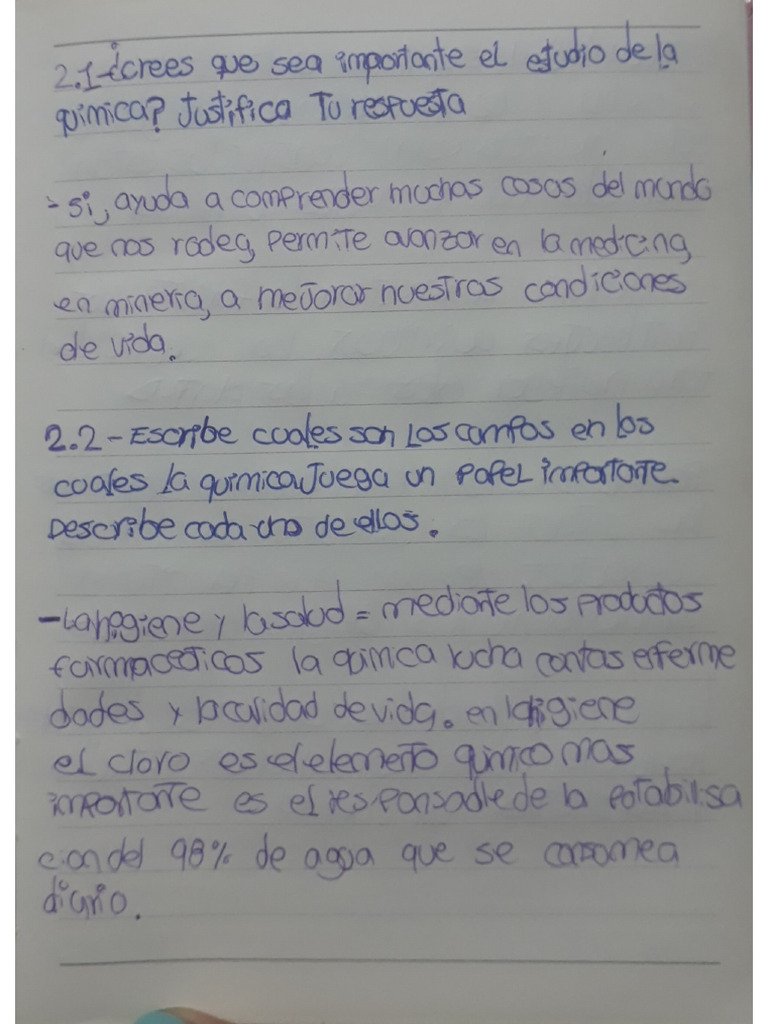 2.1-¿crees que sea importante el estudio de la
química? Justifica Tu respuesta
- si, ayuda a comprender muchas cosas del mundo
que nos rodea, permite avanzar en la medicina,
en mineria, a mejorar nuestras condiciones
de vida.
2.2-Escribe cuales son Los campos en los
cuales la quimica Juega un papel importante.
Describe cada uno de ellos.
-La higiene y la salud = mediante los productos
farmaceoticos la quimica lucha contas enferme
dades y la calidad de vida. en la higiene
el cloro es el elemento quimico mas
importante es el responsable de la potabilisa
cion del 98% de agua que se consome a
diario.